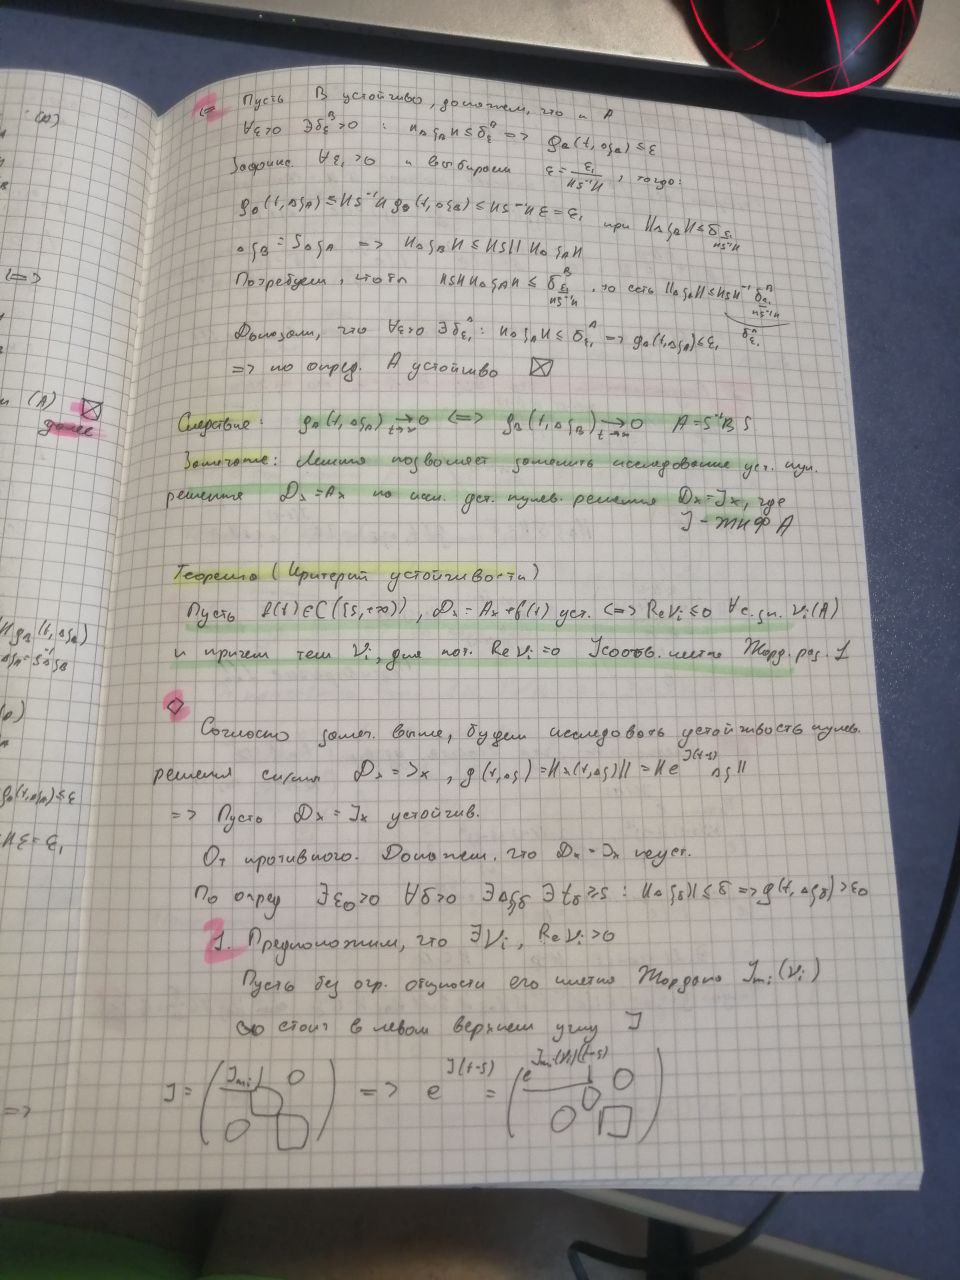 <= Пусть B устойчиво, докажем, что и A
∀ε>0 ∃δ_ε^B>0 : ||Δς_B|| ≤ δ_ε^B => ρ_B(t, Δς_B) ≤ ε
Зафикс. ∀ε₁>0 и выбираем ε = ε₁/||S⁻¹||, тогда:
ρ_A(t, Δς_A) ≤ ||S⁻¹|| ρ_B(t, Δς_B) ≤ ||S⁻¹|| ε = ε₁ при ||Δς_B|| ≤ δ_{ε₁/||S⁻¹||}
Δς_B = SΔς_A => ||Δς_B|| ≤ ||S|| ||Δς_A||
Потребуем, чтобы ||S|| ||Δς_A|| ≤ δ^B_{ε₁/||S⁻¹||}, то есть ||Δς_A|| ≤ ||S||⁻¹ δ^B_{ε₁/||S⁻¹||}
Доказали, что ∀ε₁>0 ∃δ^A_{ε₁} : ||Δς_A|| ≤ δ^A_{ε₁} => ρ_A(t, Δς_A) ≤ ε₁ δ^A_{ε₁}
=> по опред. A устойчиво ☒
Следствие: ρ_A(t, Δς_A) →_{t→∞} 0 <=> ρ_B(t, Δς_B) →_{t→∞} 0 A = S⁻¹BS
Замечание: Лемма позволяет заменить исследование уст. нул.
решения Dx = Ax на иссл. уст. нулев. решения Dx = Jx, где
J - ЖНФ A
Теорема (Критерий устойчивости)
Пусть f(t)∈C([s,+∞)), Dx = Ax + f(t) уст. <=> Reν_i ≤ 0 ∀с.зн. ν_i(A)
и причем тем ν_i, для кот. Reν_i = 0 соотв. клетка Жорд. раз. 1
◇
Согласно замеч. выше, будем исследовать устойчивость нулев.
решения системы Dx = Jx, ρ(t, Δς) = ||x(t, Δς)|| = ||e^{J(t-s)} Δς||
=> Пусть Dx = Jx устойчив.
От противного. Докажем, что Dx = Jx неуст.
По опред ∃ε₀>0 ∀δ>0 ∃Δς_δ ∃t_δ ≥ s : ||Δς_δ|| ≤ δ => ρ(t, Δς_δ) > ε₀
1. Предположим, что ∃ν_i, Reν_i > 0
Пусть без огр. общности его клетка Жордана J_{mi}(ν_i)
стоит в левом верхнем углу J
J = (J_{mi} 0 0) => e^{J(t-s)} = (e^{J_{mi}(ν_i)(t-s)} 0 0)
: (B)
<=>
(A) ☒
далее
|| ρ_B(t, Δς_B)
Δς_A = S⁻¹Δς_B
ρ_A(t, Δς_A) ≤ ε
|| ε = ε₁
=>